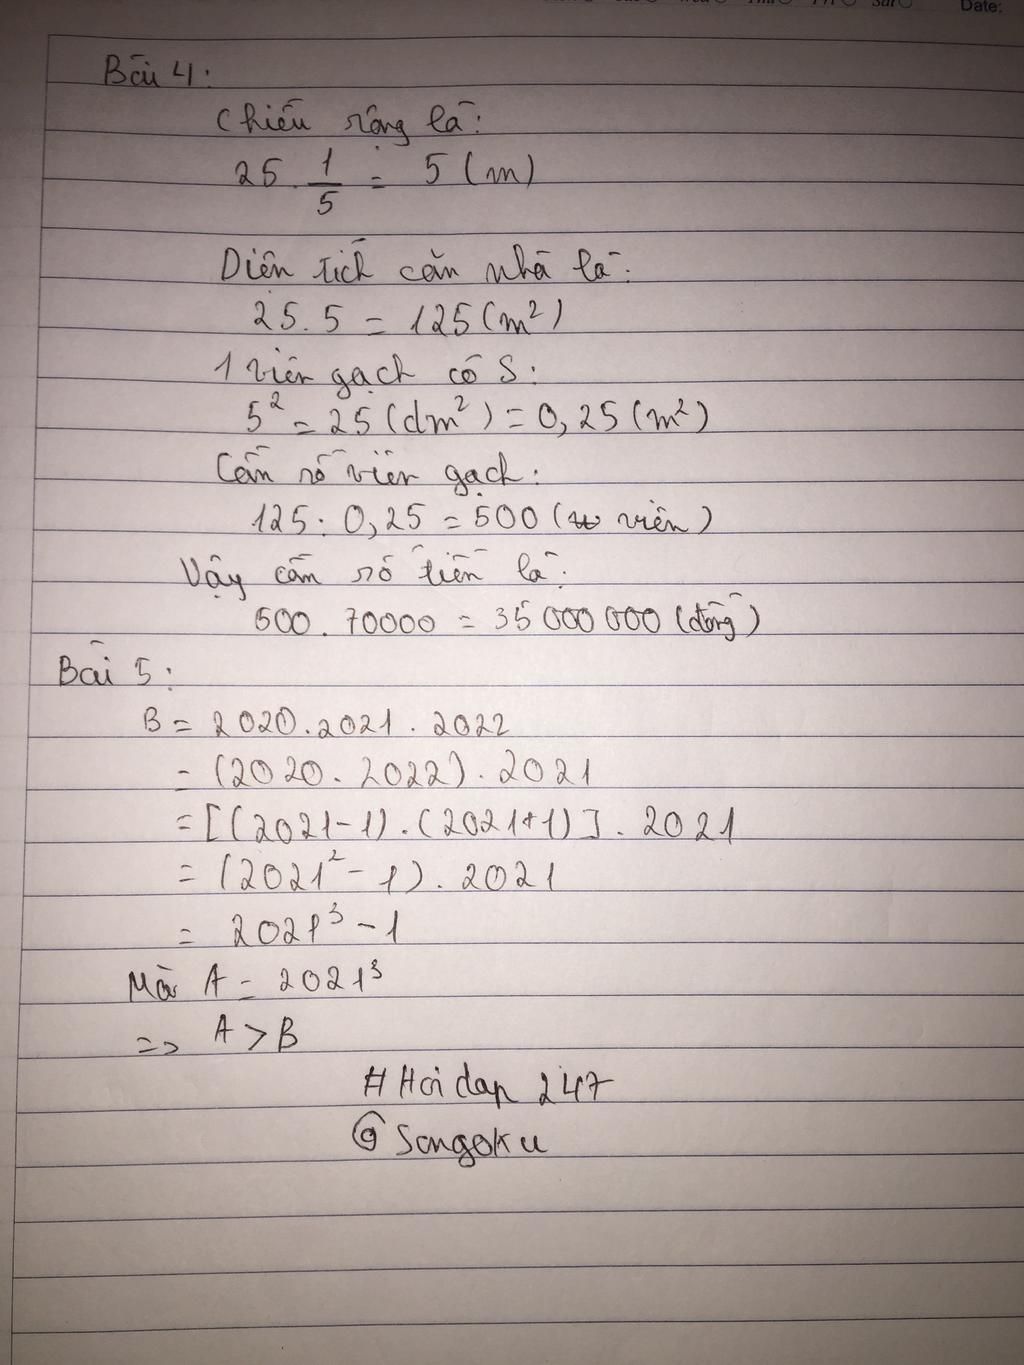 Date:
Bài 4:
Chiều rộng là:
25 . 1/5 = 5 (m)
Diện tích căn nhà là:
25.5 = 125 (m²)
1 viên gạch có S:
5² = 25 (dm²) = 0,25 (m²)
Cần số viên gạch:
125 : 0,25 = 500 (viên)
Vậy cần số tiền là:
500 . 70000 = 35 000 000 (đồng)
Bài 5:
B = 2020.2021.2022
= (2020.2022).2021
= [(2021-1).(2021+1)].2021
= (2021² - 1).2021
= 2021³ - 1
Mà A = 2021³
=> A > B
# Hoi dap 247
@ Songoku